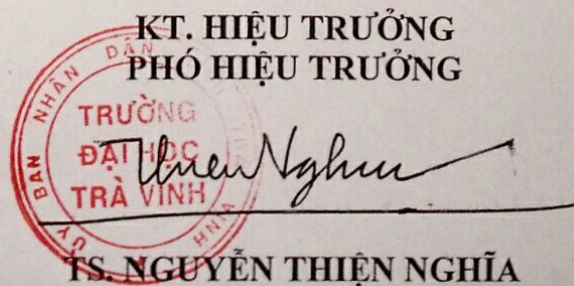 KT. HIỆU TRƯỞNG
PHÓ HIỆU TRƯỞNG
ỦY BAN NHÂN DÂN
TRƯỜNG
ĐẠI HỌC
TRÀ VINH
Thien Nghia
TS. NGUYỄN THIỆN NGHĨA